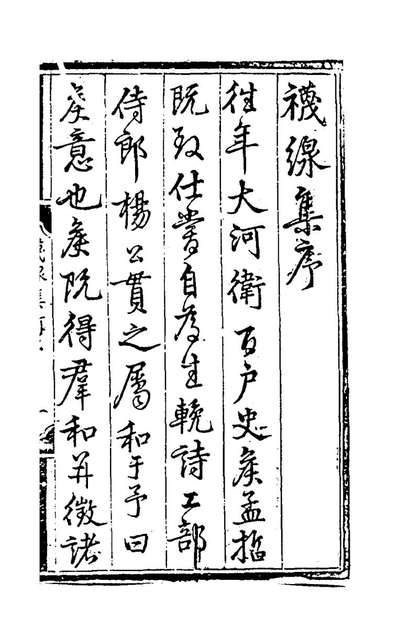 襪線集序
往年大河衛百戶史侯孟哲
既致仕嘗自為生輓詩工部
侍郎楊公貫之屬和于予曰
侯意也侯既得羣和并徵諸